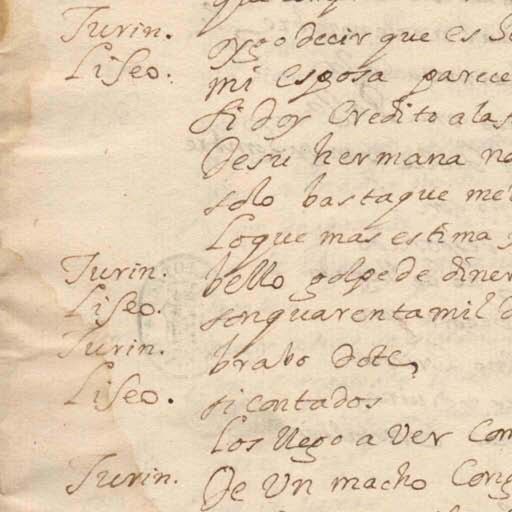 Turin. oygo decir que es
Liseo. mi esposa parece
si doy Credito a las
De su hermana no
solo basta que me
lo que mas estima
Turin. bello golpe de diner
Liseo. son quarenta mil
Turin. brabo dote,
Liseo. si contados
los llego a Ver Com
Turin. De Un macho Cong